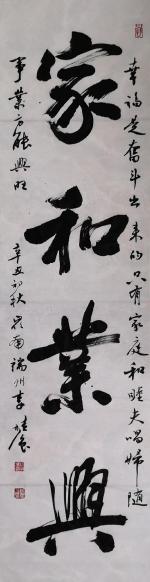 家和業興
幸福是奮斗出来的只有家庭和睦夫唱婦随
事業方能興旺
辛丑初秋
瑞州李